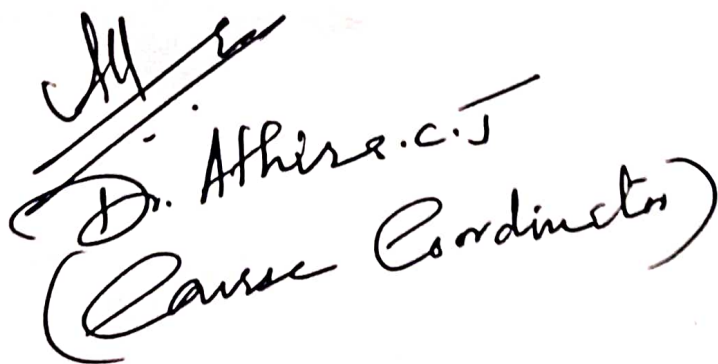 Dr. Athira.C.J
(Course Coordinator)